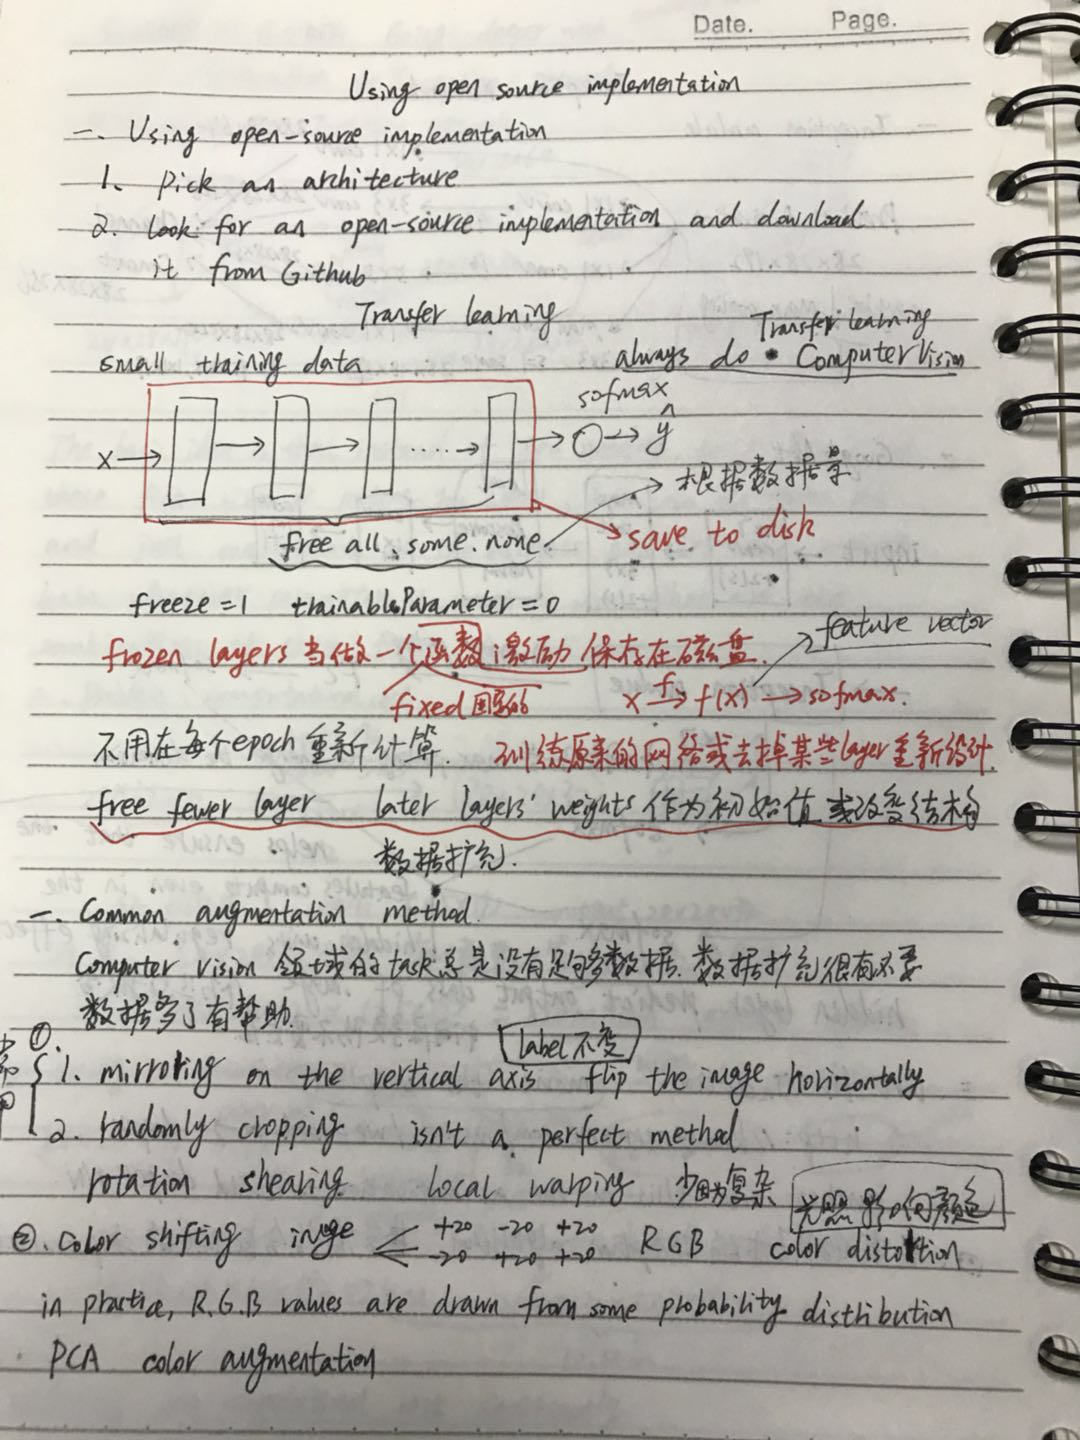 Date. Page.
Using open source implementation
一. Using open-source implementation
1. Pick an architecture
2. Look for an open-source implementation and download
it from Github
Transfer learning
small training data
Transfer learning
always do Computer Vision
sofmax
x → → → ..... → → ○ → ŷ
根据数据量
free all、some、none
save to disk
freeze=1 trainableParameter=0
feature vector
frozen layers 当做一个函数 激励 保存在磁盘.
fixed 固定的 x →f f(x) → sofmax.
不用在每个epoch重新计算. 训练原来的网络或去掉某些layer重新设计.
free fewer layer later layers' weights 作为初始值 或改变结构
数据扩充.
一. Common augmentation method.
Computer vision 领域的task总是没有足够多数据. 数据扩充很有必要
数据多了有帮助.
常用
①.
label不变
1. mirroring on the vertical axis flip the image horizontally
2. randomly cropping isn't a perfect method
rotation shearing local warping 少 因为复杂
光照影响颜色
②. Color shifting image +20 -20 +20 RGB color distortion
-20 +20 +20
in practice, R.G.B values are drawn from some probability distribution
PCA color augmentation